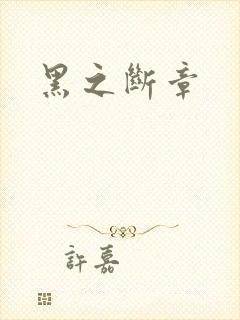 黑之斷章
許嘉